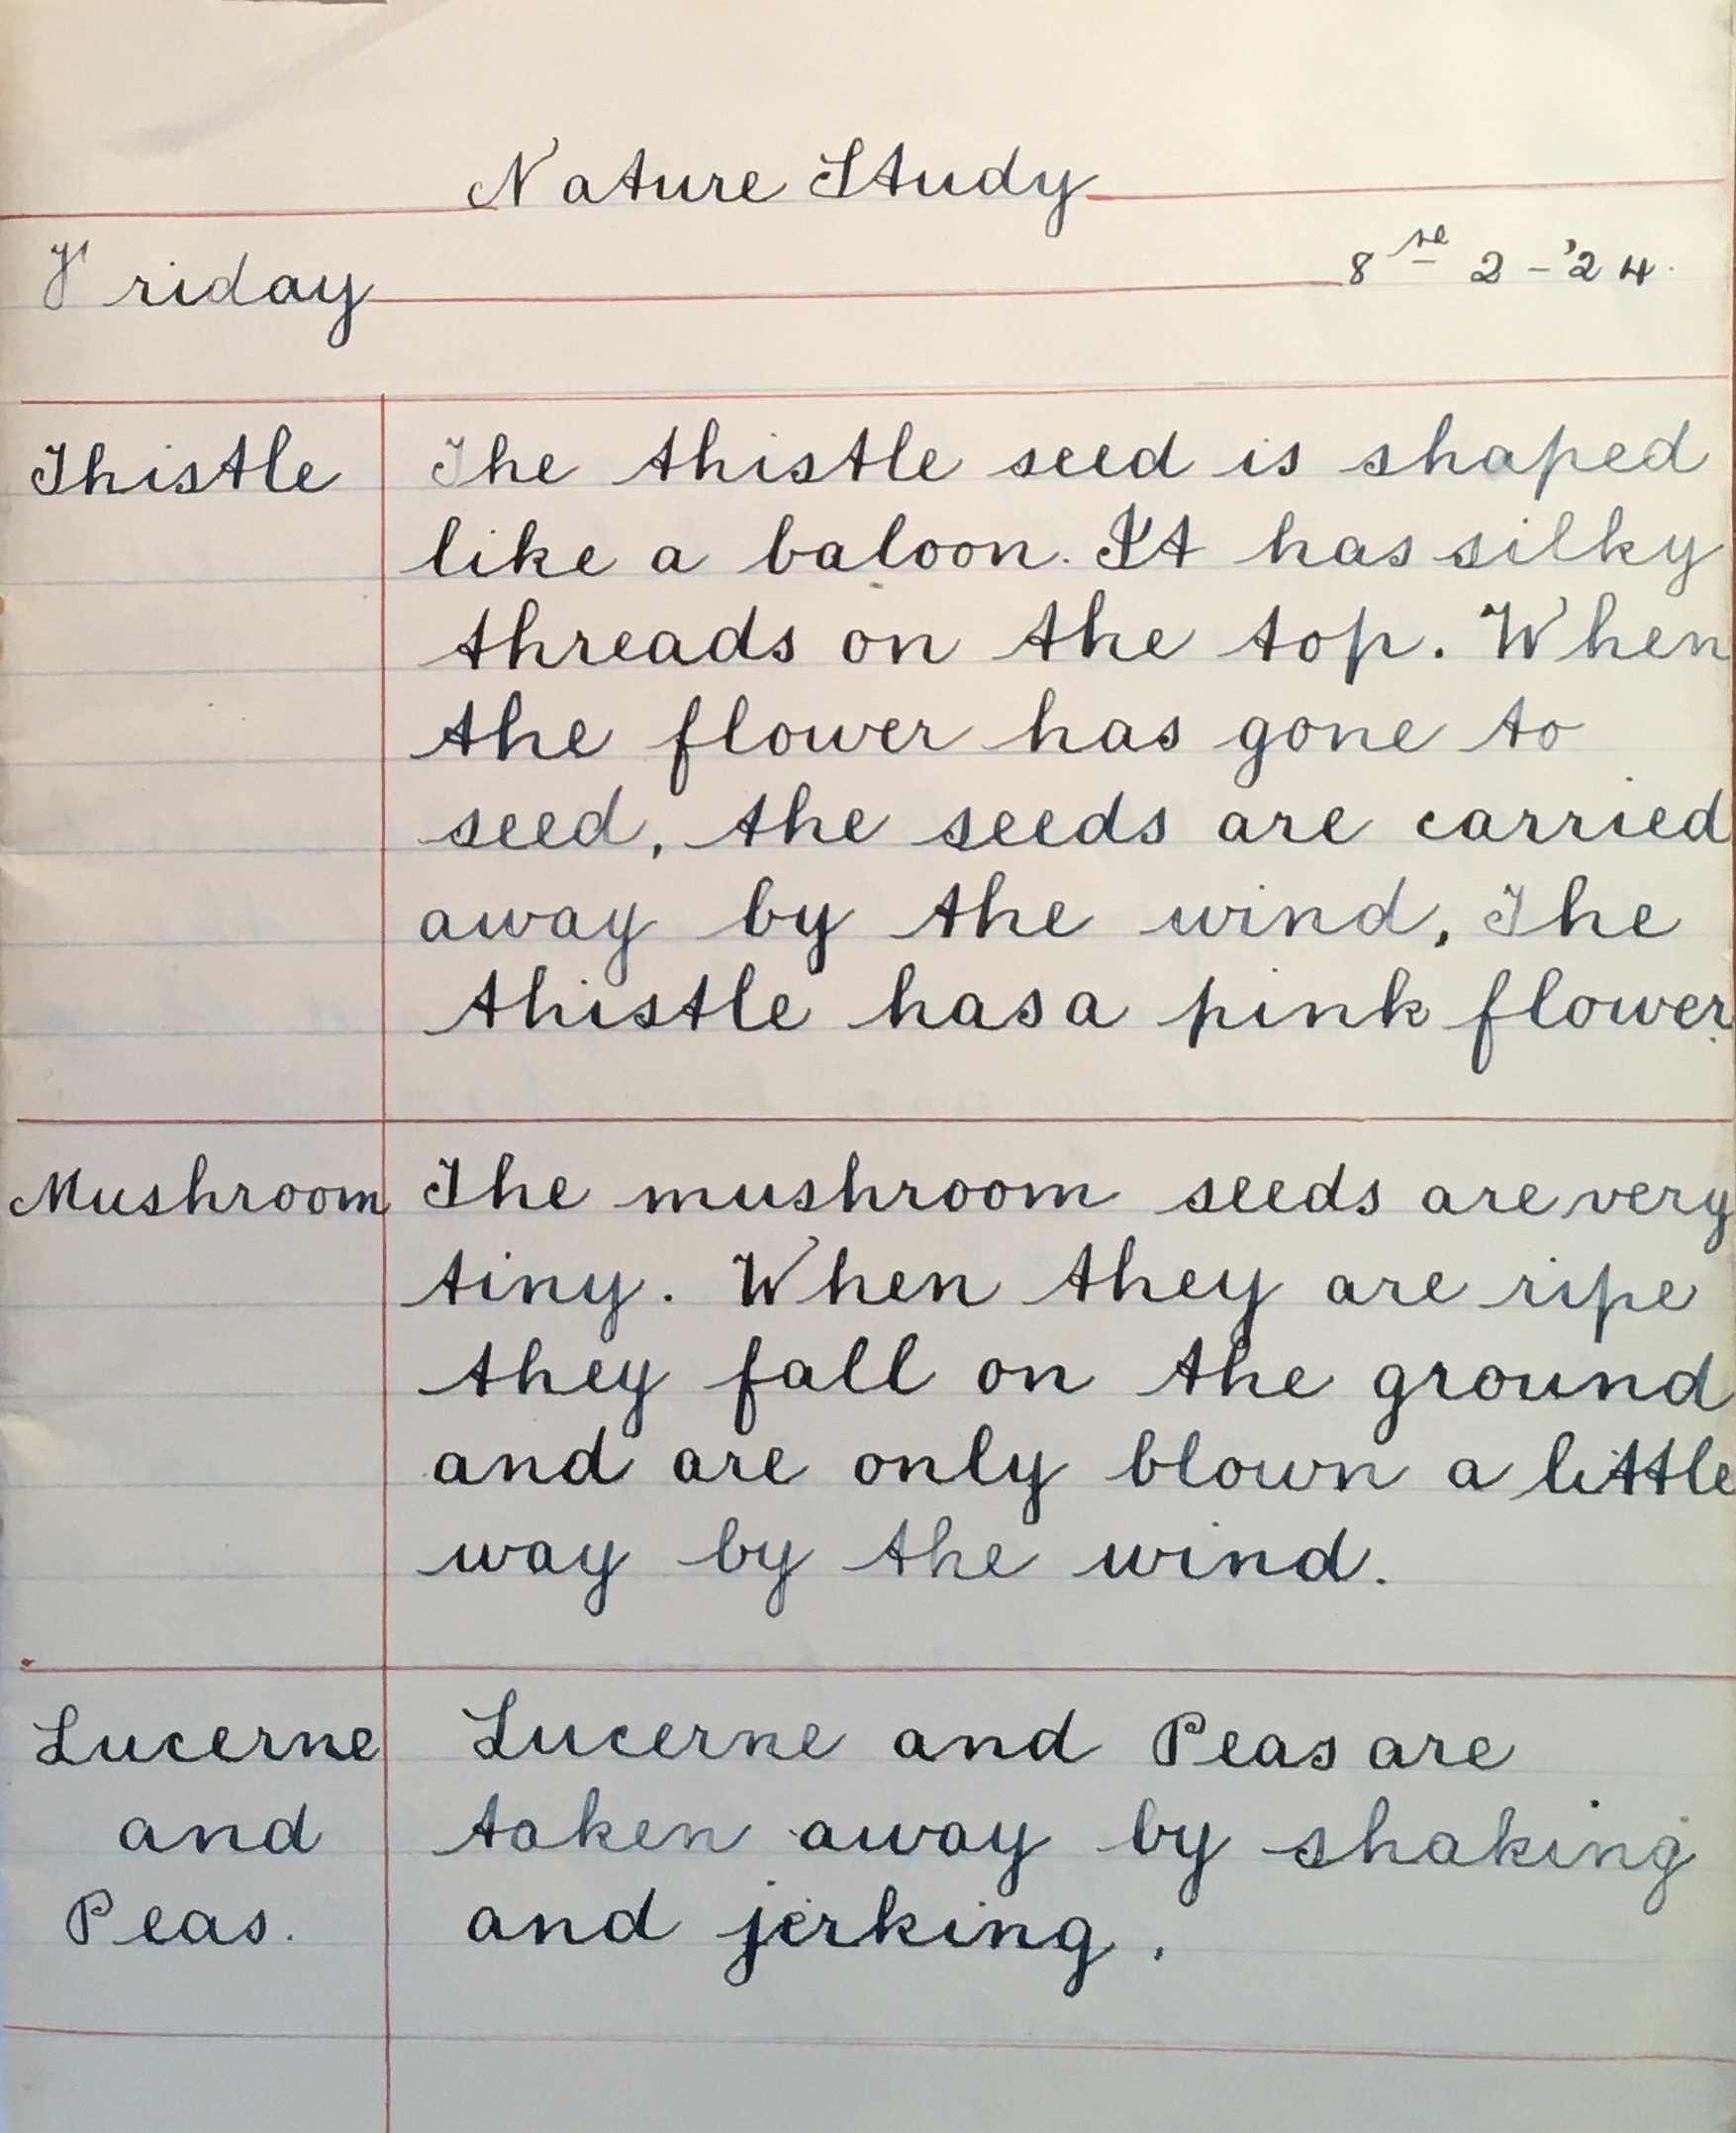 Nature Study
Friday 8 2-'24.
Thistle The thistle seed is shaped
like a baloon. It has silky
threads on the top. When
the flower has gone to
seed, the seeds are carried
away by the wind, The
thistle has a pink flower.
Mushroom The mushroom seeds are very
tiny. When they are ripe
they fall on the ground
and are only blown a little
way by the wind.
Lucerne Lucerne and Peas are
and taken away by shaking
Peas. and jerking.